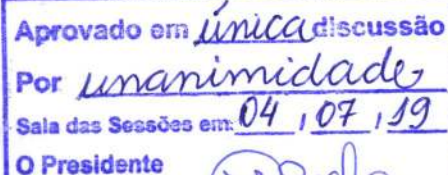 Aprovado em única discussão
Por unanimidade
Sala das Sessões em: 04 / 07 / 19
O Presidente